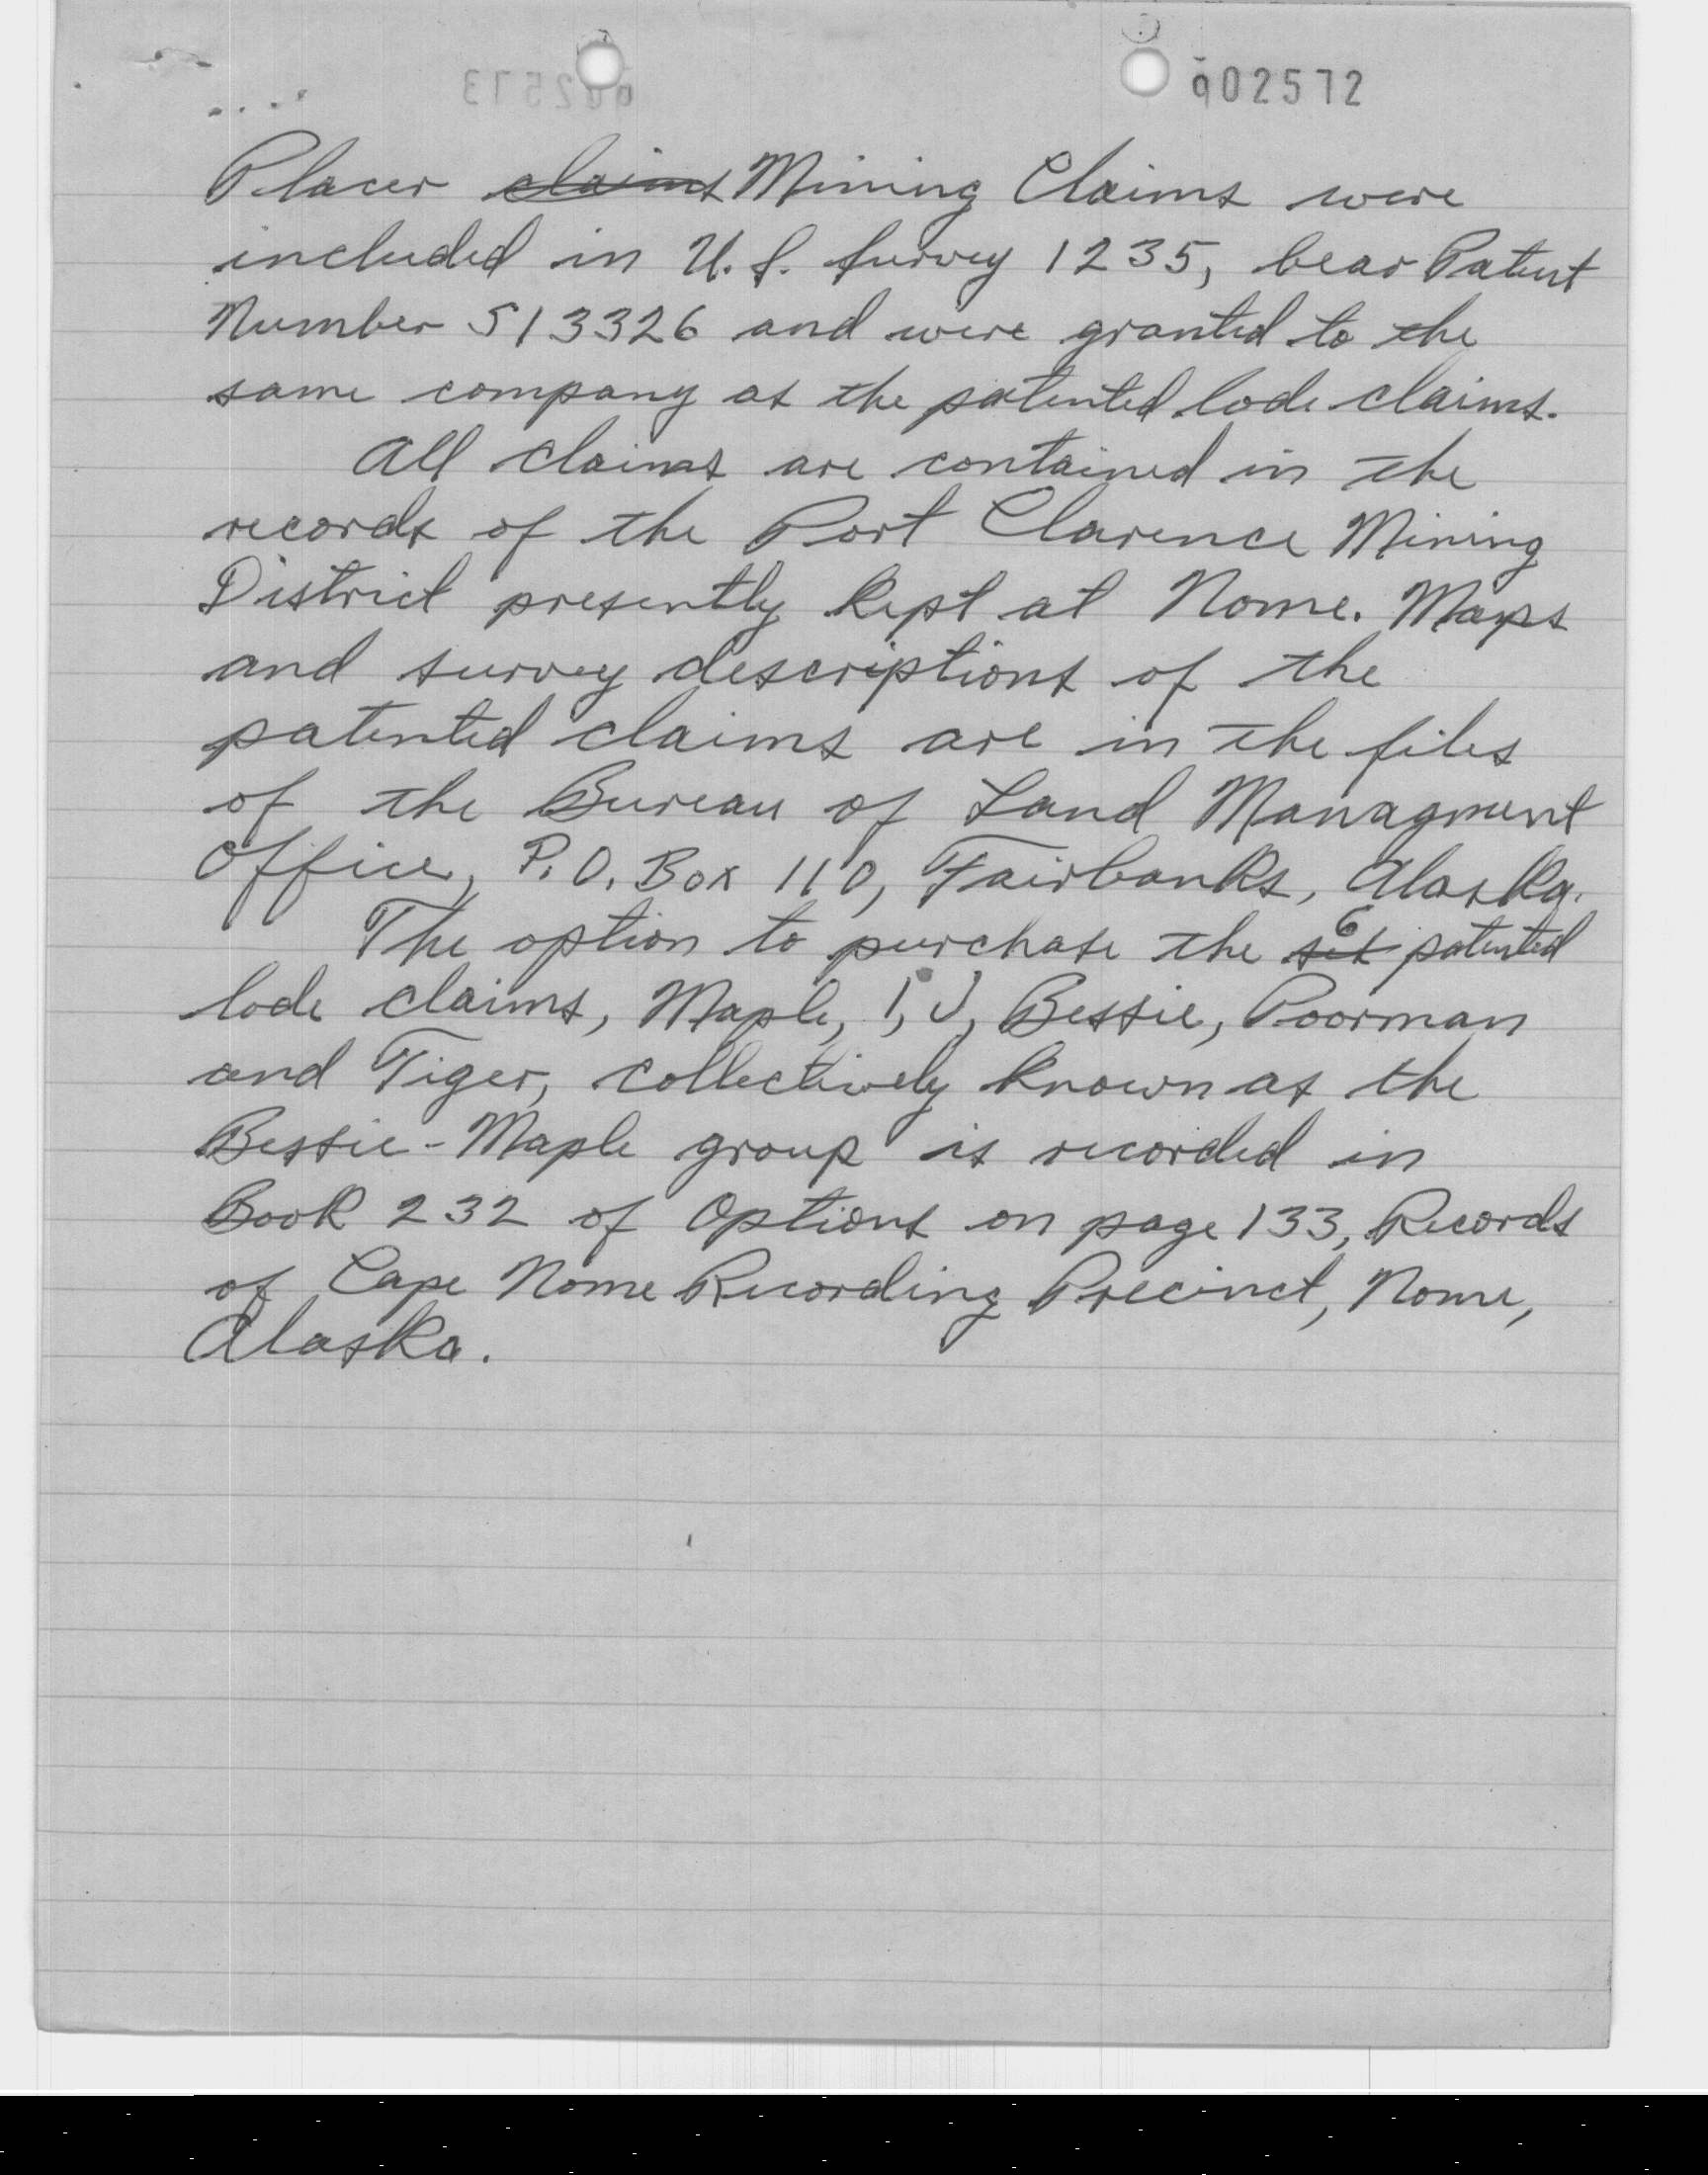 002572
Placer claims Mining Claims were
included in U.S. Survey 1235, bear Patent
Number 513326 and were granted to the
same company as the patented lode claims.
All claims are contained in the
records of the Port Clarence Mining
District presently kept at Nome. Maps
and survey descriptions of the
patented claims are in the files
of the Bureau of Land Managment
Office, P.O. Box 110, Fairbanks, Alaska.
The option to purchase the six 6 patented
lode claims, Maple, I, J, Bessie, Poorman
and Tiger, collectively known as the
Bessie-Maple group is recorded in
Book 232 of Options on page 133, Records
of Cape Nome Recording Precinct, Nome,
Alaska.